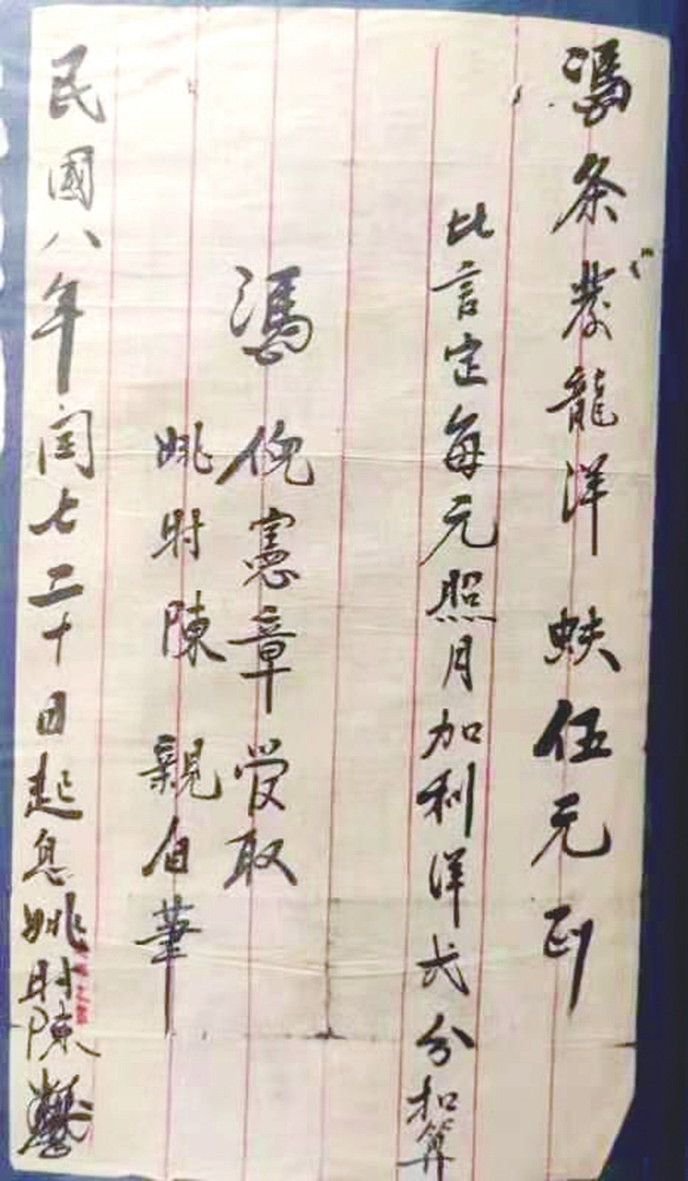 馮条發龍洋 伍元正
比言定每元照月加利洋弍分扣算
馮倪憲章受取
姚財陳 親自筆
民國八年閏七二十日起息姚財陳